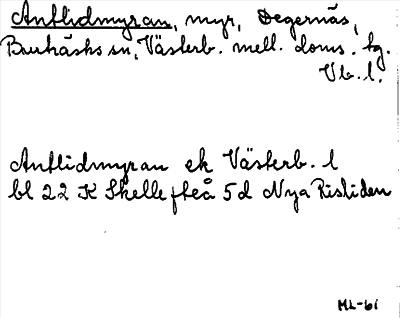 Antlidmyran, myr, Degernäs,
Burträsks sn, Västerb. mell. doms. tg.
Vb. l.
Antlidmyran ek Västerb. l
bl 22 K Skellefteå 5d Nya Ristiden
ML-61